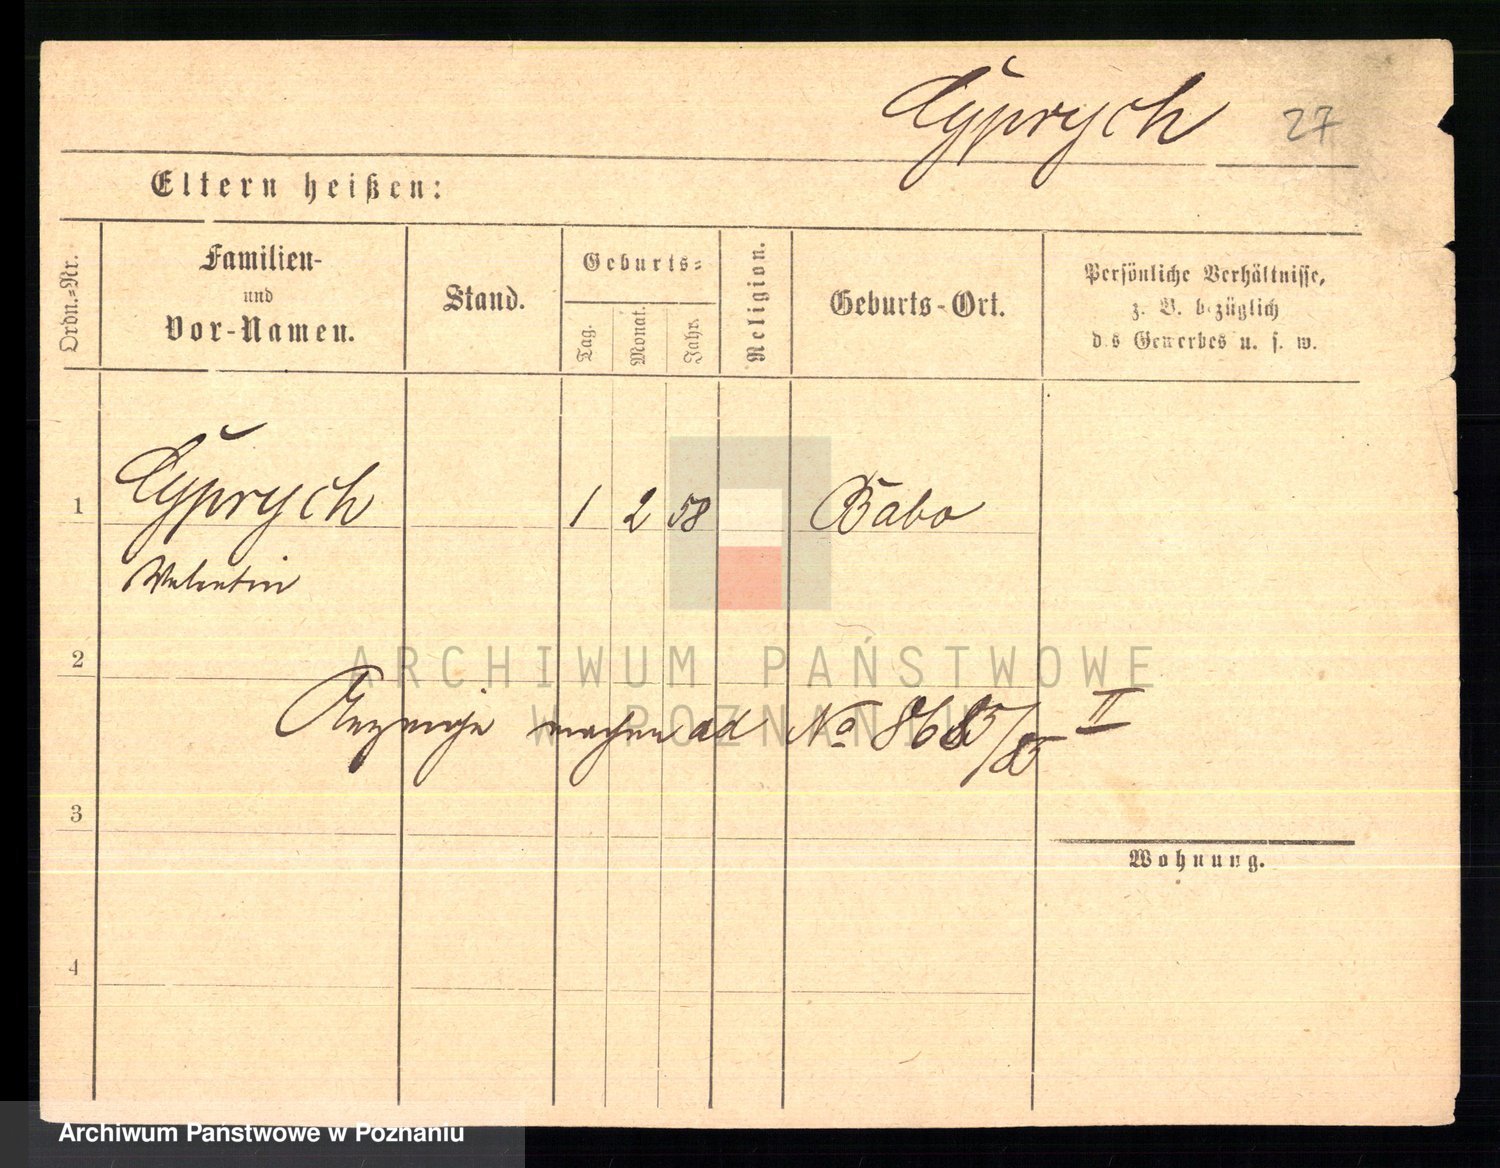 Cyprych 27
Eltern heißen:
Ordn.-Nr.
Familien-
und
Vor-Namen.
Stand.
Geburts-
Tag.
Monat.
Jahr.
Religion.
Geburts-Ort.
Persönliche Verhältnisse,
z. B. bezüglich
des Gewerbes u. s. w.
1 Cyprych 1 2 58 Babo
Valentin
2
ARCHIWUM PAŃSTWOWE
W POZNANIU
Anzeige machen ad No 8685/85 II
3
Wohnung.
4
Archiwum Państwowe w Poznaniu